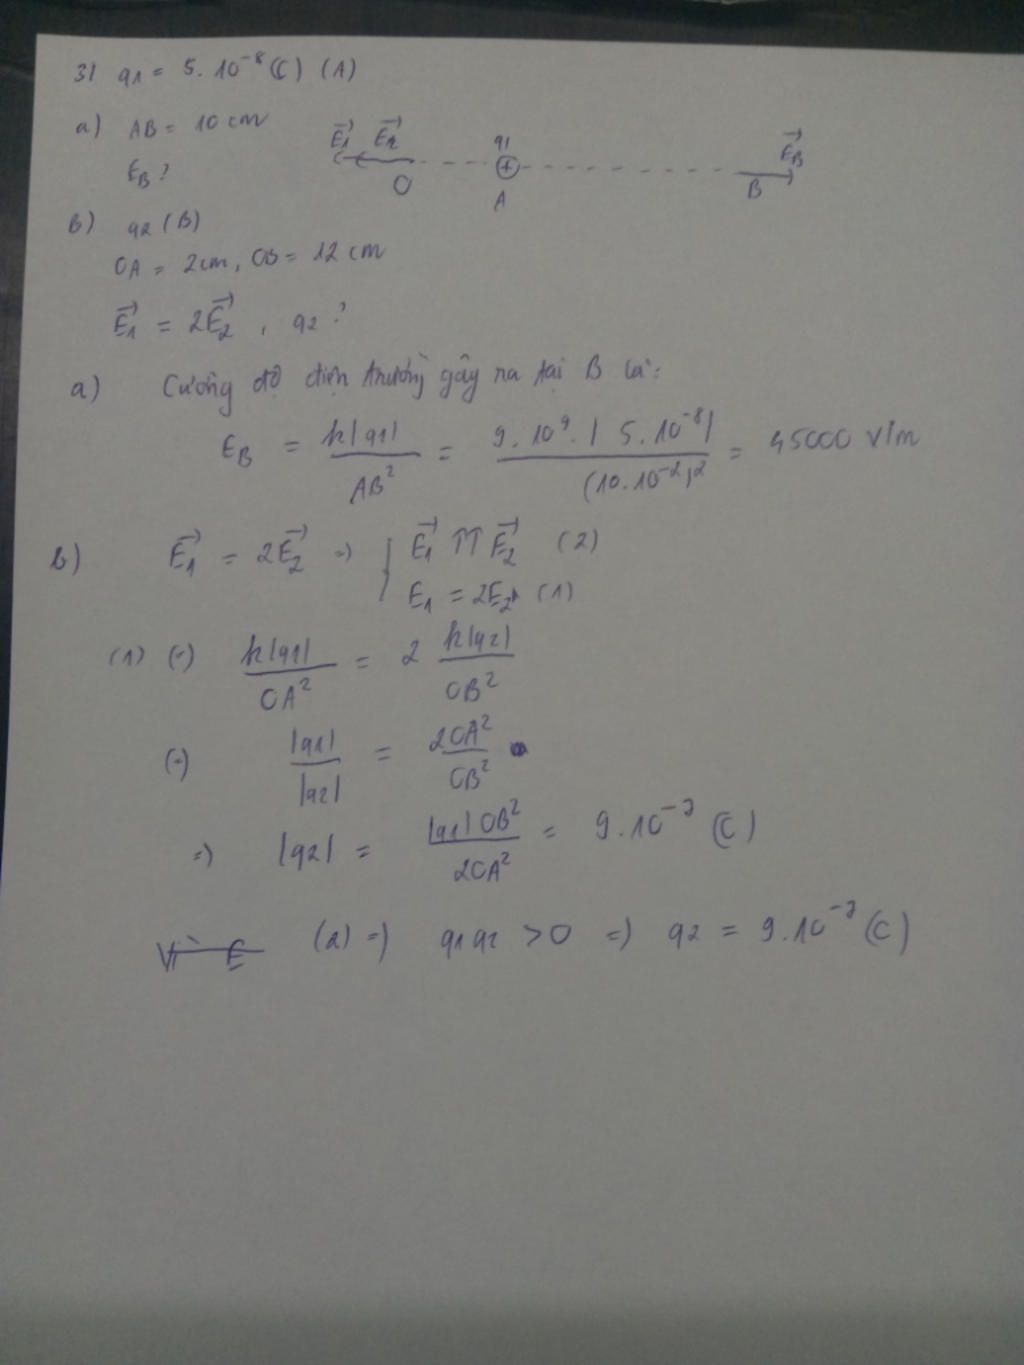 3/ q1 = 5.10⁻⁸ (C) (A)
a) AB = 10 cm
E⃗1 E⃗2 q1 E⃗B
O A B
EB ?
b) q2 (B)
OA = 2cm, OB = 12 cm
E⃗1 = 2E⃗2 , q2 ?
a) Cường độ điện trường gây ra tại B là:
EB = k|q1| / AB² = 9.10⁹.|5.10⁻⁸| / (10.10⁻²)² = 45000 V/m
b) E⃗1 = 2E⃗2 => { E⃗1 ⇈ E⃗2 (2)
E1 = 2E2 (1)
(1) (=) k|q1| / OA² = 2 k|q2| / OB²
(=) |q1| / |q2| = 2OA² / OB²
=) |q2| = |q1|OB² / 2OA² = 9.10⁻⁷ (C)
Vì E (2) =) q1q2 > 0 =) q2 = 9.10⁻⁷ (C)